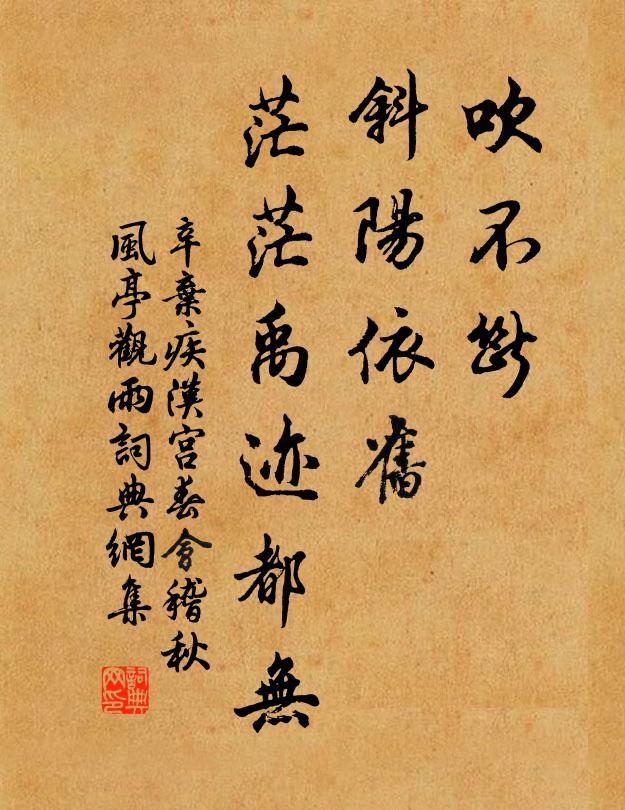 吹不斷
斜陽依舊
茫茫禹迹都無
辛棄疾漢宮春會稽秋
風亭觀雨詞典網集
詞典
网印